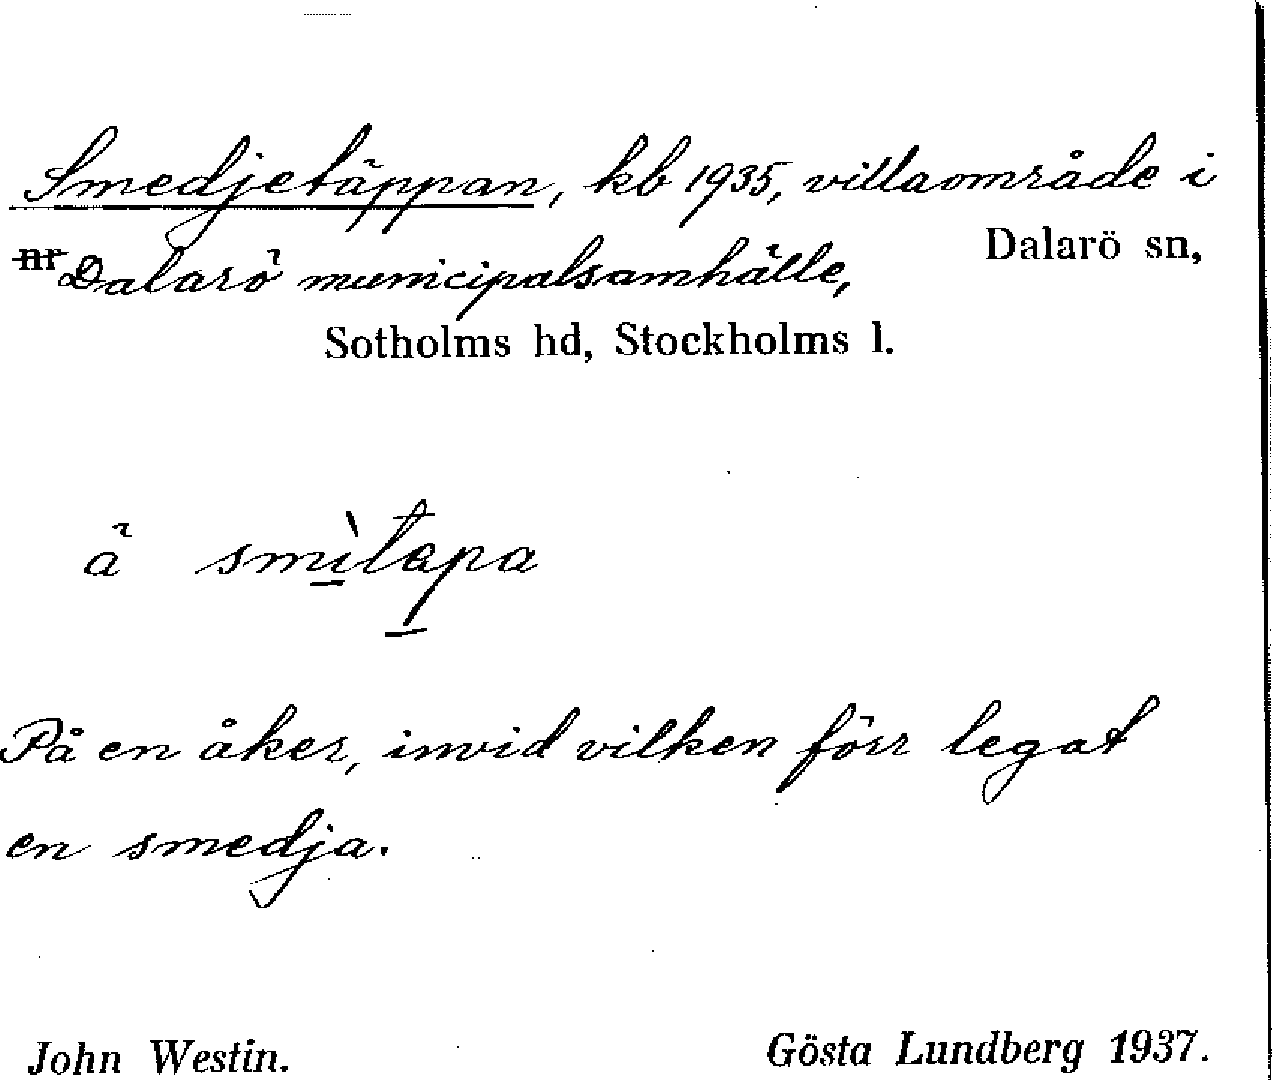 Smedjetäppan, kb 1935, villaområde i
Dalarö sn,
nr Dalarö municipalsamhälle,
Sotholms hd, Stockholms l.
å smìtapa
På en åker, invid vilken förr legat
en smedja.
John Westin. Gösta Lundberg 1937.